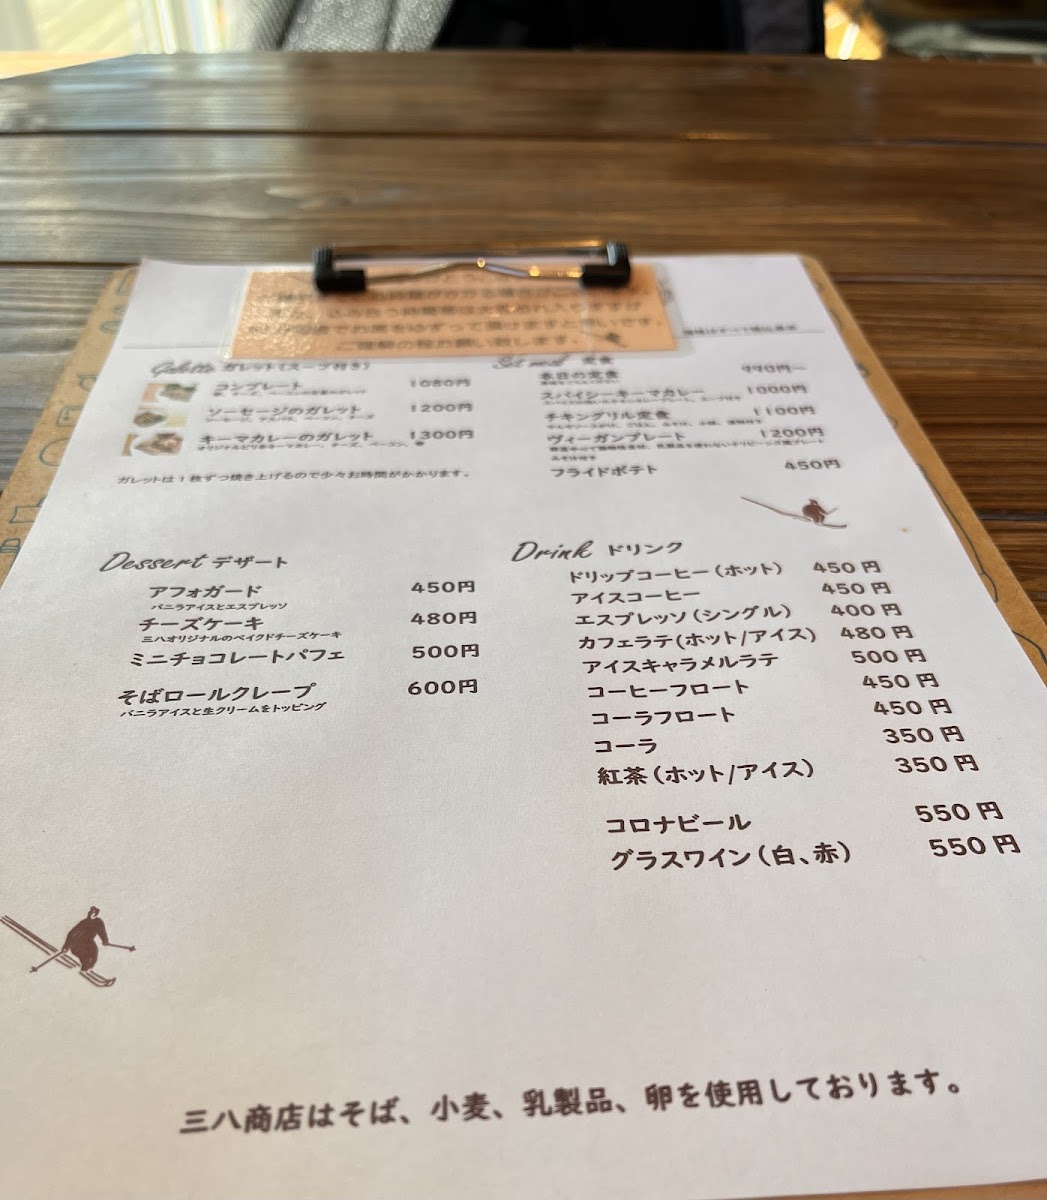 お時間がかかる場合が
込み合う時間帯は大変恐れ入りますが
でお席をゆずって頂けますと幸いです。
ご理解の程お願い致します。
Galette ガレット(スープ付き)
コンプレート 1080円
ソーセージのガレット 1200円
キーマカレーのガレット 1300円
ガレットは1枚ずつ焼き上げるので少々お時間がかかります。
Set meal 定食
本日の定食 990円〜
スパイシーキーマカレー 1000円
チキングリル定食 1100円
ヴィーガンプレート 1200円
フライドポテト 450円
Dessert デザート
アフォガード 450円
バニラアイスとエスプレッソ
チーズケーキ 480円
三八オリジナルのベイクドチーズケーキ
ミニチョコレートパフェ 500円
そばロールクレープ 600円
バニラアイスと生クリームをトッピング
Drink ドリンク
ドリップコーヒー(ホット) 450円
アイスコーヒー 450円
エスプレッソ(シングル) 400円
カフェラテ(ホット/アイス) 480円
アイスキャラメルラテ 500円
コーヒーフロート 450円
コーラフロート 450円
コーラ 350円
紅茶(ホット/アイス) 350円
コロナビール 550円
グラスワイン(白、赤) 550円
三八商店はそば、小麦、乳製品、卵を使用しております。